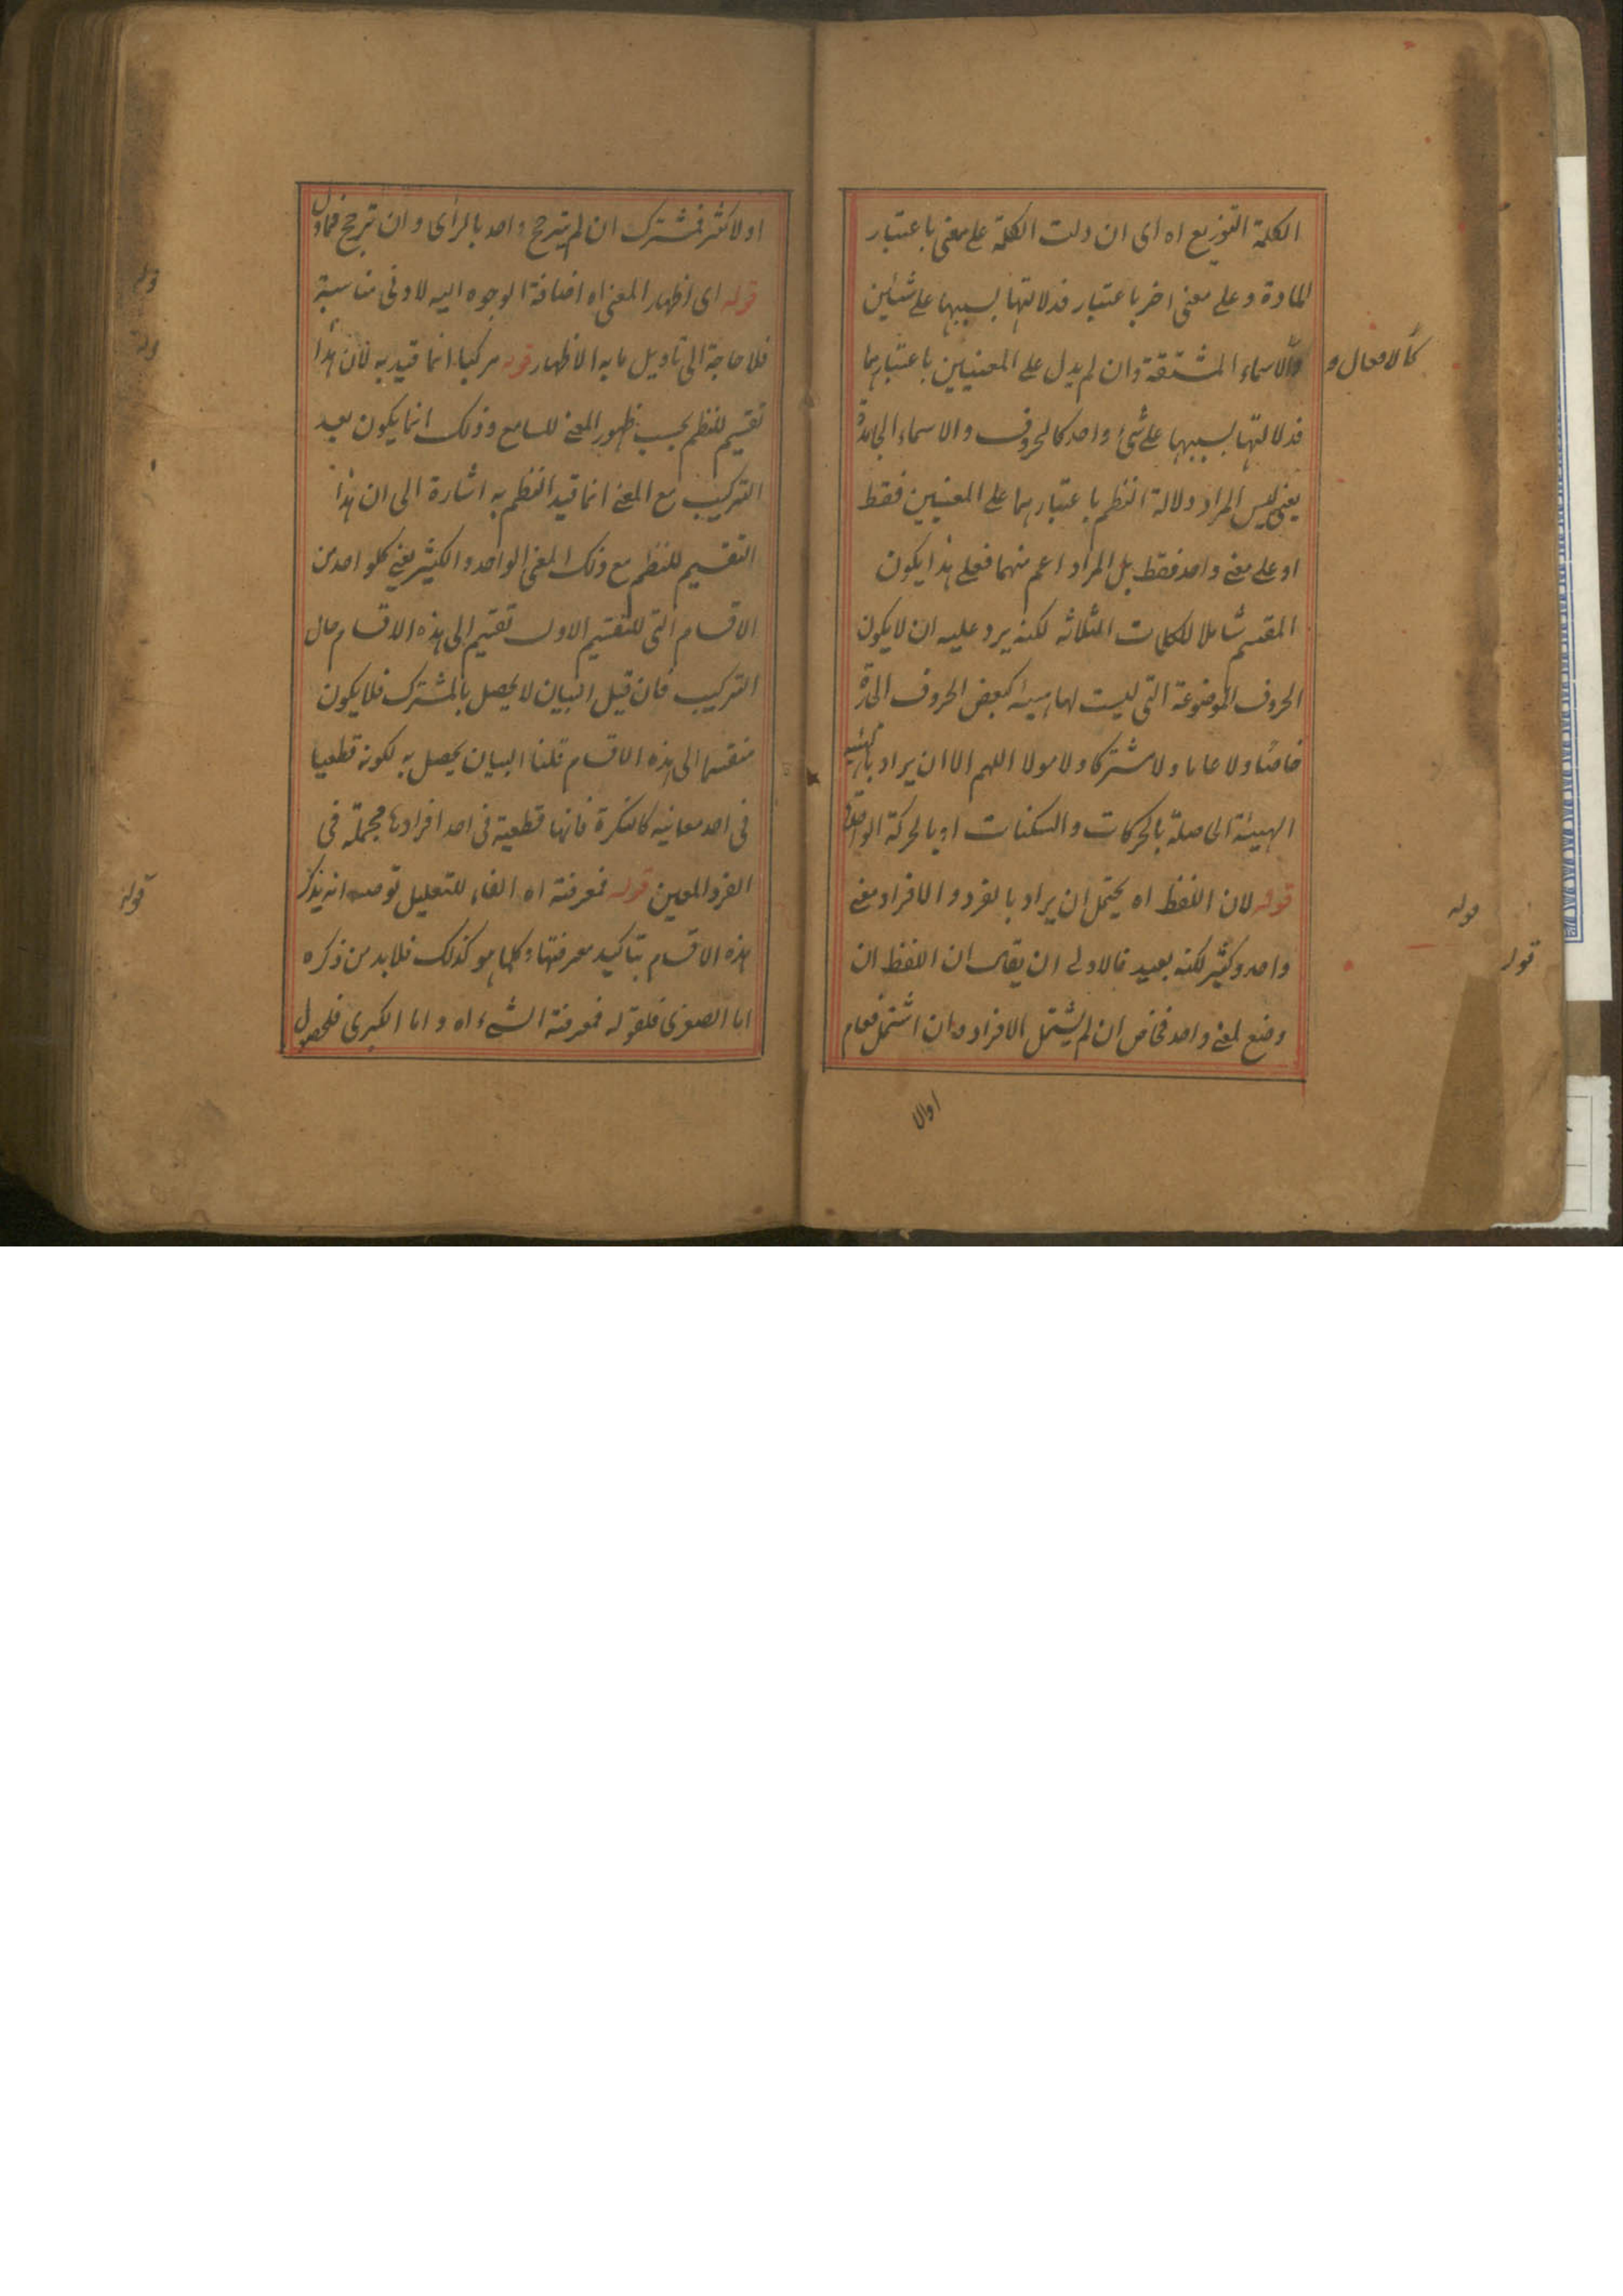 الكلمة التوزيع اه اى ان دلت الكلمة على معنى باعتبار
المادة وعلى معنى اخر باعتبار فدلالتها بسببهما على شئين
كالافعال و
والاسماء المشتقة وان لم يدل على المعنيين باعتبارهما
فدلالتها بسببهما على شئ واحد كالحروف والاسماء الجامدة
يعنى ليس المراد دلالة النظم باعتبارهما على المعنيين فقط
او على معنى واحد فقط بل المراد اعم منهما فعلى هذا يكون
المقسم شاملا للكلمات الثلاثه لكنه يرد عليه ان لا يكون
الحروف الموضوعة التى ليست لها هيئة كبعض الحروف الجارة
خاصا ولا عاما ولا مشتركا ولا مولا اللهم الا ان يراد بالهيئة
الهيئة الحاصلة بالحركات والسكنات او بالحركة الواحدة
قوله لان اللفظ اه يحتمل ان يراد بالفرد والافراد معنى
قوله
قوله
واحد وكثير لكنه بعيد فالاولى ان يقال ان اللفظ ان
وضع لمعنى واحد فخاص ان لم يشتمل الافراد وان اشتمل فعام
او لا
او لاكثر فمشترك ان لم يترجح واحد بالرأى وان ترجح فماول
قوله اى اظهار المعنى اه اضافة الوجوه اليه لادنى مناسبة
فلا حاجة الى تاويل ما به الاظهار قوله مركبا انما قيد به لان هذا
تقسيم للنظم بحسب ظهور المعنى للسامع وذلك انما يكون بعد
التركيب مع المعنى انما قيد النظم به اشارة الى ان هذا
التقسيم للنظم مع ذلك المعنى الواحد والكثير يعنى كلواحد من
الاقسام التى للتقسيم الاول تقسيم الى هذه الاقسام حال
التركيب فان قيل البيان لا يحصل بالمشترك فلا يكون
منقسما الى هذه الاقسام قلنا البيان يحصل به لكونه قطعيا
فى احد معانيه كالنكرة فانها قطعية فى احد افرادها مجملة فى
الفرد المعين قوله فمعرفته اه الفاء للتعليل توصه انه يذكر
قوله
هذه الاقسام بتاكيد معرفتها وكلما هو كذلك فلا بد من ذكره
اما الصغرى فلقوله فمعرفة الشىء اه واما الكبرى فلحصول